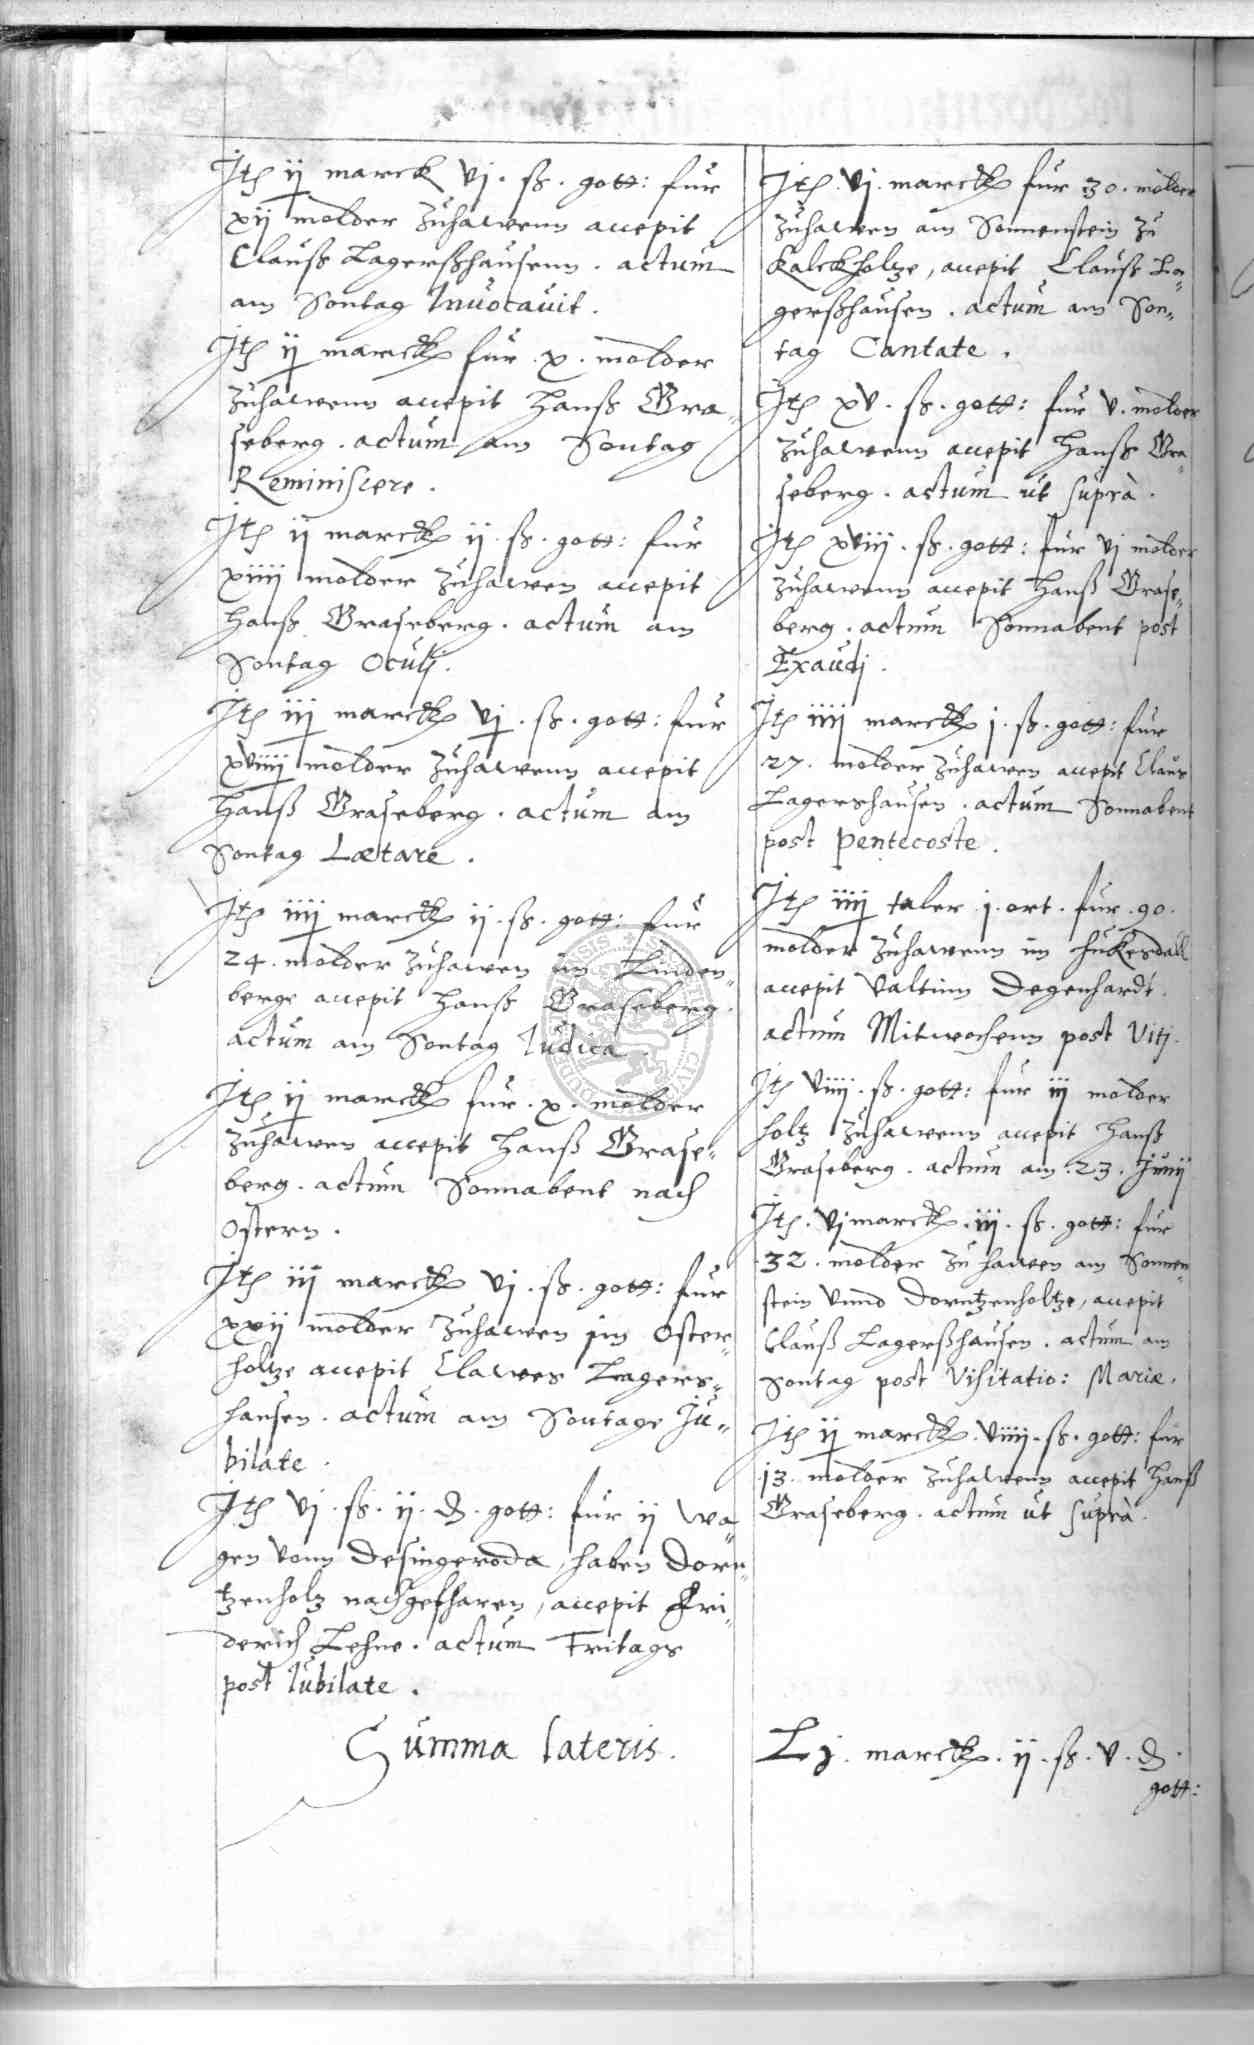 Jtem ij marck vj. ß. gott: fur
xij molder zuhawenn accepit
Clauß Lagerßhausenn. actum
am Sontag Inuocauit.
Jtem ij marck fur .x. molder
zuhawenn accepit Hanß Gra„
seberg. actum am Sontag
Reminiscere.
Jtem ij marck ij. ß. gott: fur
xiiij molder zuhawen accepit
Hanß Graseberg. actum am
Sontag Oculj.
Jtem iij marck vj. ß. gott: fur
xviiij molder zuhawenn accepit
Hanß Graseberg. actum am
Sontag Lætare.
Jtem iiij marck ij. ß. gott: fur
24. molder zuhawen im Linden„
berge accepit Hanß Graseberg.
actum am Sontag Iudica.
Jtem ij marck fur .x. molder
zuhawen accepit Hanß Grase„
berg. actum Sonnabent nach
Ostern.
Jtem iij marck vj. ß. gott: fur
xxij molder zuhawen im Oster„
holtze accepit Clawes Lagers„
hausen. actum am Sontage Ju„
bilate.
Jtem vj. ß. ij. ₰. gott: fur ij wa„
gen vonn Desingeroda, haben Dorn„
tzenholtz nachgefharen, accepit Fri„
derich Lehne. actum Fritags
post Iubilate.
Summa lateris.
Jtem .vj. marck fur 30. molder
zuhawen am Sonnenstein zu
Kalckholtze, accepit Clauß La„
gerßhausen. actum am Son„
tag Cantate.
Jtem xv. ß. gott: fur v. molder
zuhawenn accepit Hanß Gra„
seberg. actum ut suprà.
Jtem xviij. ß. gott: fur vj molder
zuhawenn accepit Hanß Grase„
berg. actum Sonnabent post
Exaudj.
Jtem iiij marck j. ß. gott: fur
27. molder zuhawen accepit Claus
Lagershausen. actum Sonnabent
post Pentecoste.
Jtem iiij taler j. ort. fur .90.
molder zuhawenn im Hukesdall
accepit Valtinn Degenhardt.
actum Mitwochenn post Vitj.
Jtem viiij. ß. gott: fur iij molder
holtz zuhawenn accepit Hanß
Graseberg. actum am .23. Junij
Jtem. vj marck .iij. ß. gott: fur
32. molder zu hawen am Sonnen„
stein vnnd Dorntzenholtze, accepit
Clauß Lagerßhausen. actum am
Sontag post Visitatio: Mariæ.
Jtem ij marck. viiij. ß. gott: fur
13. molder zuhawenn accepit Hanß
Graseberg. actum ut suprà.
Lj. marck. ij. ß. v. ₰.
gott: